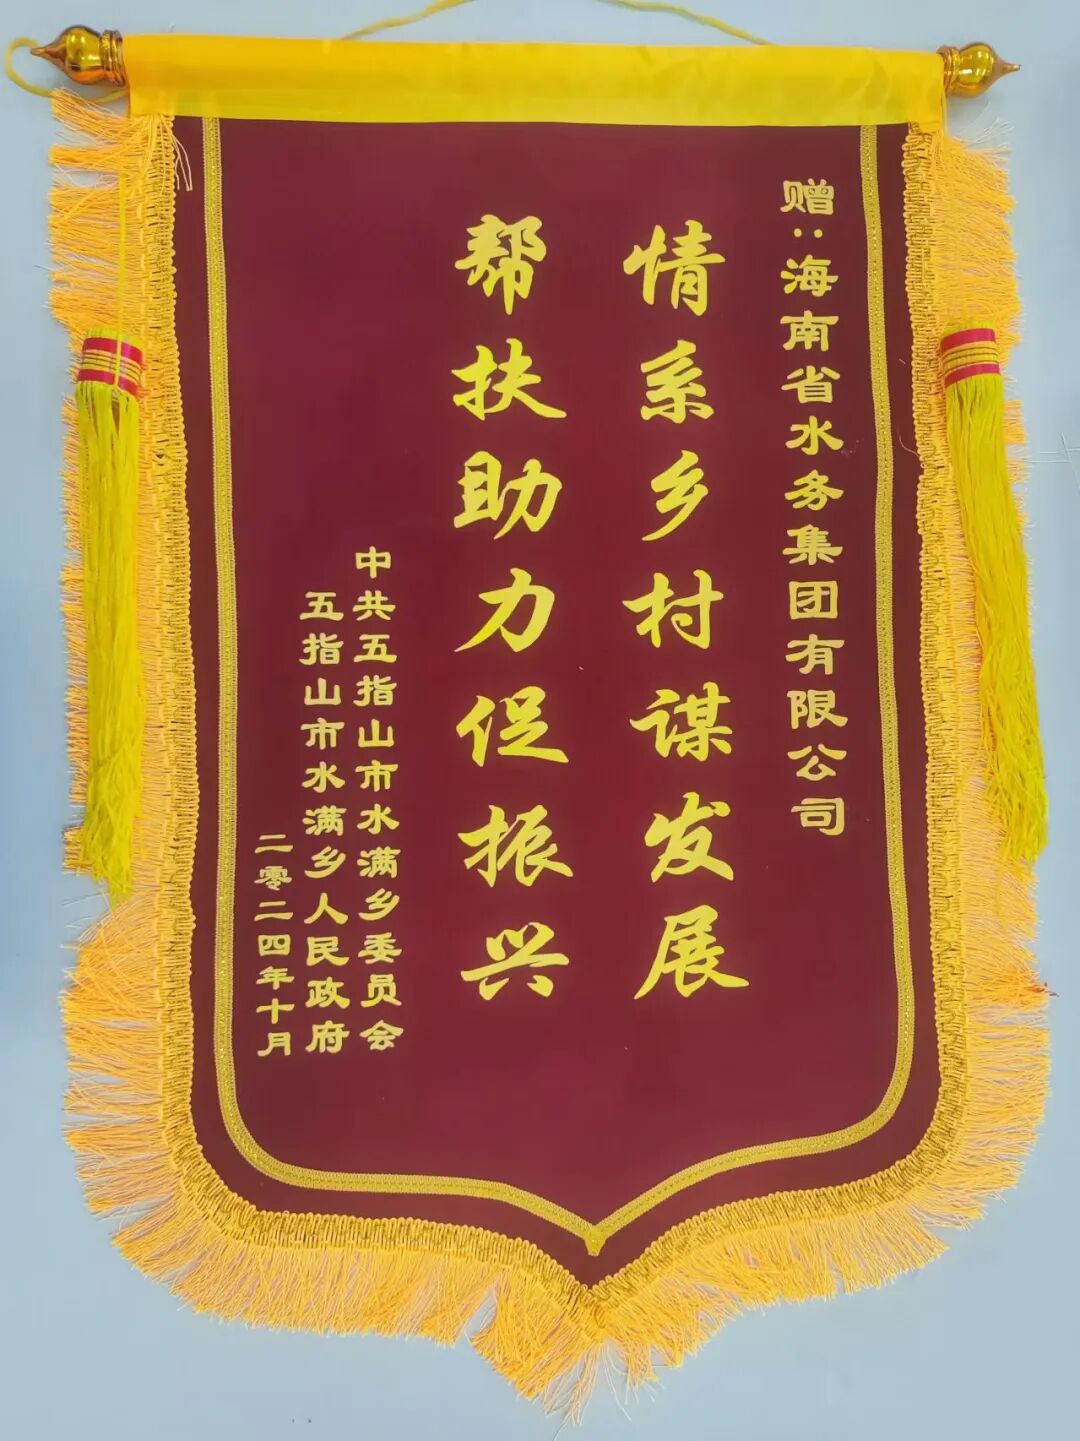 赠：海南省水务集团有限公司
情系乡村谋发展
帮扶助力促振兴
中共五指山市水满乡委员会
五指山市水满乡人民政府
二零二四年十月